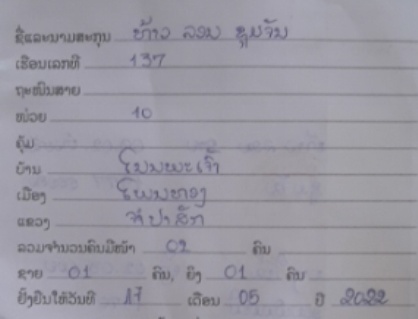 ຊື່ແລະນາມສະກຸນ ທ້າວ ລອນ ຊຸມຈັນ
ເຮືອນເລກທີ 137
ຖະໜົນສາຍ
ໜ່ວຍ 10
ຄຸ້ມ
ບ້ານ ໂນນພະເຈົ້າ
ເມືອງ ໂພນທອງ
ແຂວງ ຈຳປາສັກ
ລວມຈຳນວນຄົນມີໜ້າ 02 ຄົນ
ຊາຍ 01 ຄົນ, ຍິງ 01 ຄົນ
ຢັ້ງຢືນໃຫ້ວັນທີ 17 ເດືອນ 05 ປີ 2022